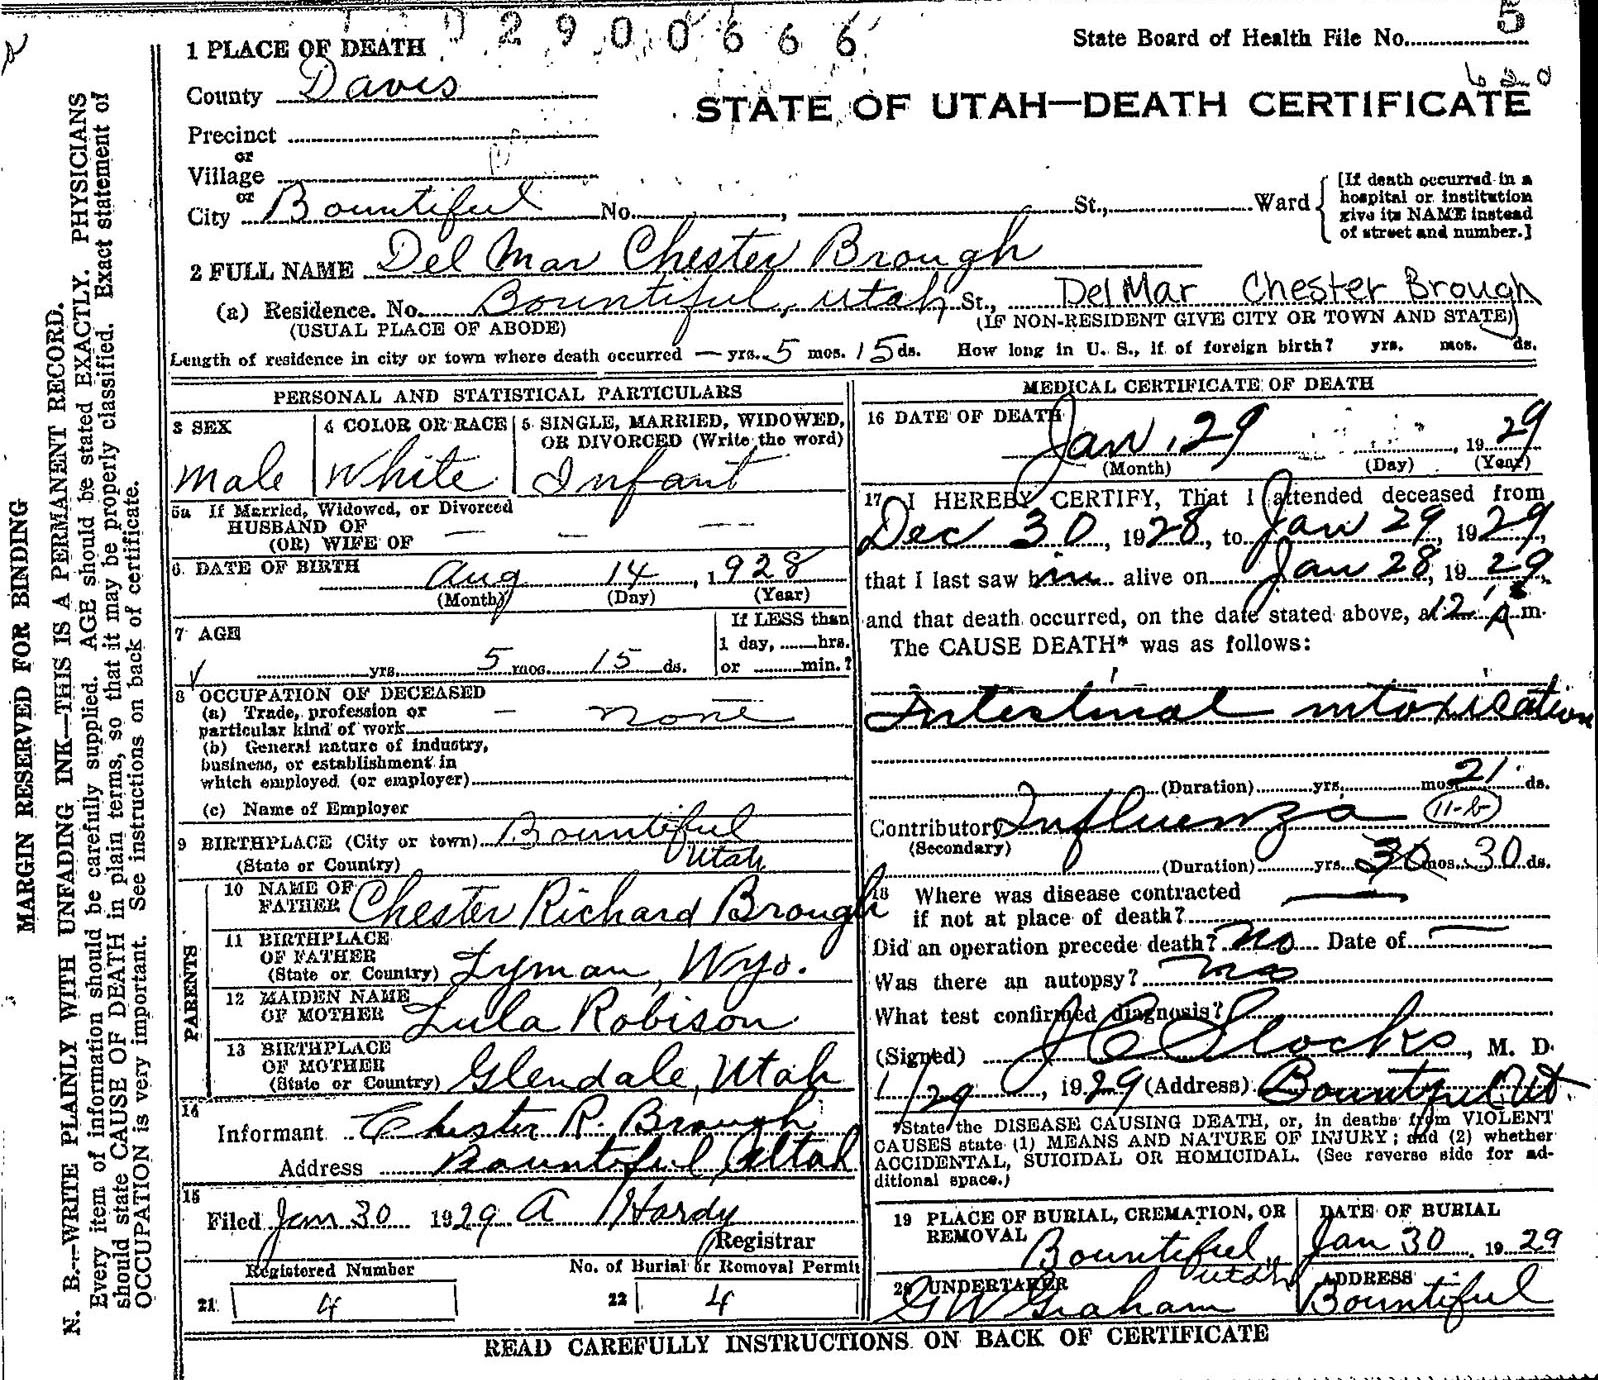 2 9 0 0 6 6 6
5
1 PLACE OF DEATH
State Board of Health File No.
County Davis
STATE OF UTAH—DEATH CERTIFICATE
Precinct
or
Village
or
City Bountiful No. , St., Ward
[If death occurred in a
hospital or institution
give its NAME instead
of street and number.]
2 FULL NAME Del Mar Chester Brough
(a) Residence. No. Bountiful, Utah St., DelMar Chester Brough
(USUAL PLACE OF ABODE)
(IF NON-RESIDENT GIVE CITY OR TOWN AND STATE)
Length of residence in city or town where death occurred — yrs. 5 mos. 15 ds. How long in U. S., if of foreign birth? yrs. mos. ds.
PERSONAL AND STATISTICAL PARTICULARS
3 SEX
Male
4 COLOR OR RACE
White
5 SINGLE, MARRIED, WIDOWED,
OR DIVORCED (Write the word)
Infant
5a If Married, Widowed, or Divorced
HUSBAND OF
(OR) WIFE OF — — —
6. DATE OF BIRTH Aug 14, 1928
(Month) (Day) (Year)
7 AGE
yrs. 5 mos 15 ds.
If LESS than
1 day, hrs.
or min.?
8 OCCUPATION OF DECEASED
(a) Trade, profession or
particular kind of work — none
(b) General nature of industry,
business, or establishment in
which employed (or employer)
(c) Name of Employer
9 BIRTHPLACE (City or town) Bountiful
(State or Country) Utah
PARENTS
10 NAME OF
FATHER Chester Richard Brough
11 BIRTHPLACE
OF FATHER
(State or Country) Lyman, Wyo.
12 MAIDEN NAME
OF MOTHER Lula Robison
13 BIRTHPLACE
OF MOTHER
(State or Country) Glendale, Utah
14
Informant Chester R. Brough
Address Bountiful, Utah
15
Filed Jan 30 1929 A Hardy
Registrar
Registered Number
21 4
No. of Burial or Removal Permit
22 4
MEDICAL CERTIFICATE OF DEATH
16 DATE OF DEATH
Jan. 29, 1929
(Month) (Day) (Year)
17 I HEREBY CERTIFY, That I attended deceased from
Dec 30, 1928, to Jan 29, 1929,
that I last saw him alive on Jan 28, 1929,
and that death occurred, on the date stated above, at 12 A m.
The CAUSE DEATH* was as follows:
Intestinal intoxication
(Duration) yrs. mos 21 ds.
Contributory Influenza 11-b
(Secondary)
(Duration) yrs. 30 mos. 30 ds.
18 Where was disease contracted
if not at place of death? —
Did an operation precede death? No Date of —
Was there an autopsy? no
What test confirmed diagnosis?
(Signed) J C Stocks, M. D.
1/29, 1929 (Address) Bountiful Ut.
*State the DISEASE CAUSING DEATH, or, in deaths from VIOLENT
CAUSES state (1) MEANS AND NATURE OF INJURY; and (2) whether
ACCIDENTAL, SUICIDAL OR HOMICIDAL. (See reverse side for ad-
ditional space.)
19 PLACE OF BURIAL, CREMATION, OR
REMOVAL Bountiful, Utah
DATE OF BURIAL
Jan 30, 1929
20 UNDERTAKER
GW Graham
ADDRESS
Bountiful
READ CAREFULLY INSTRUCTIONS ON BACK OF CERTIFICATE
MARGIN RESERVED FOR BINDING
N. B.—WRITE PLAINLY WITH UNFADING INK—THIS IS A PERMANENT RECORD.
Every item of information should be carefully supplied. AGE should be stated EXACTLY. PHYSICIANS
should state CAUSE OF DEATH in plain terms, so that it may be properly classified. Exact statement of
OCCUPATION is very important. See instructions on back of certificate.